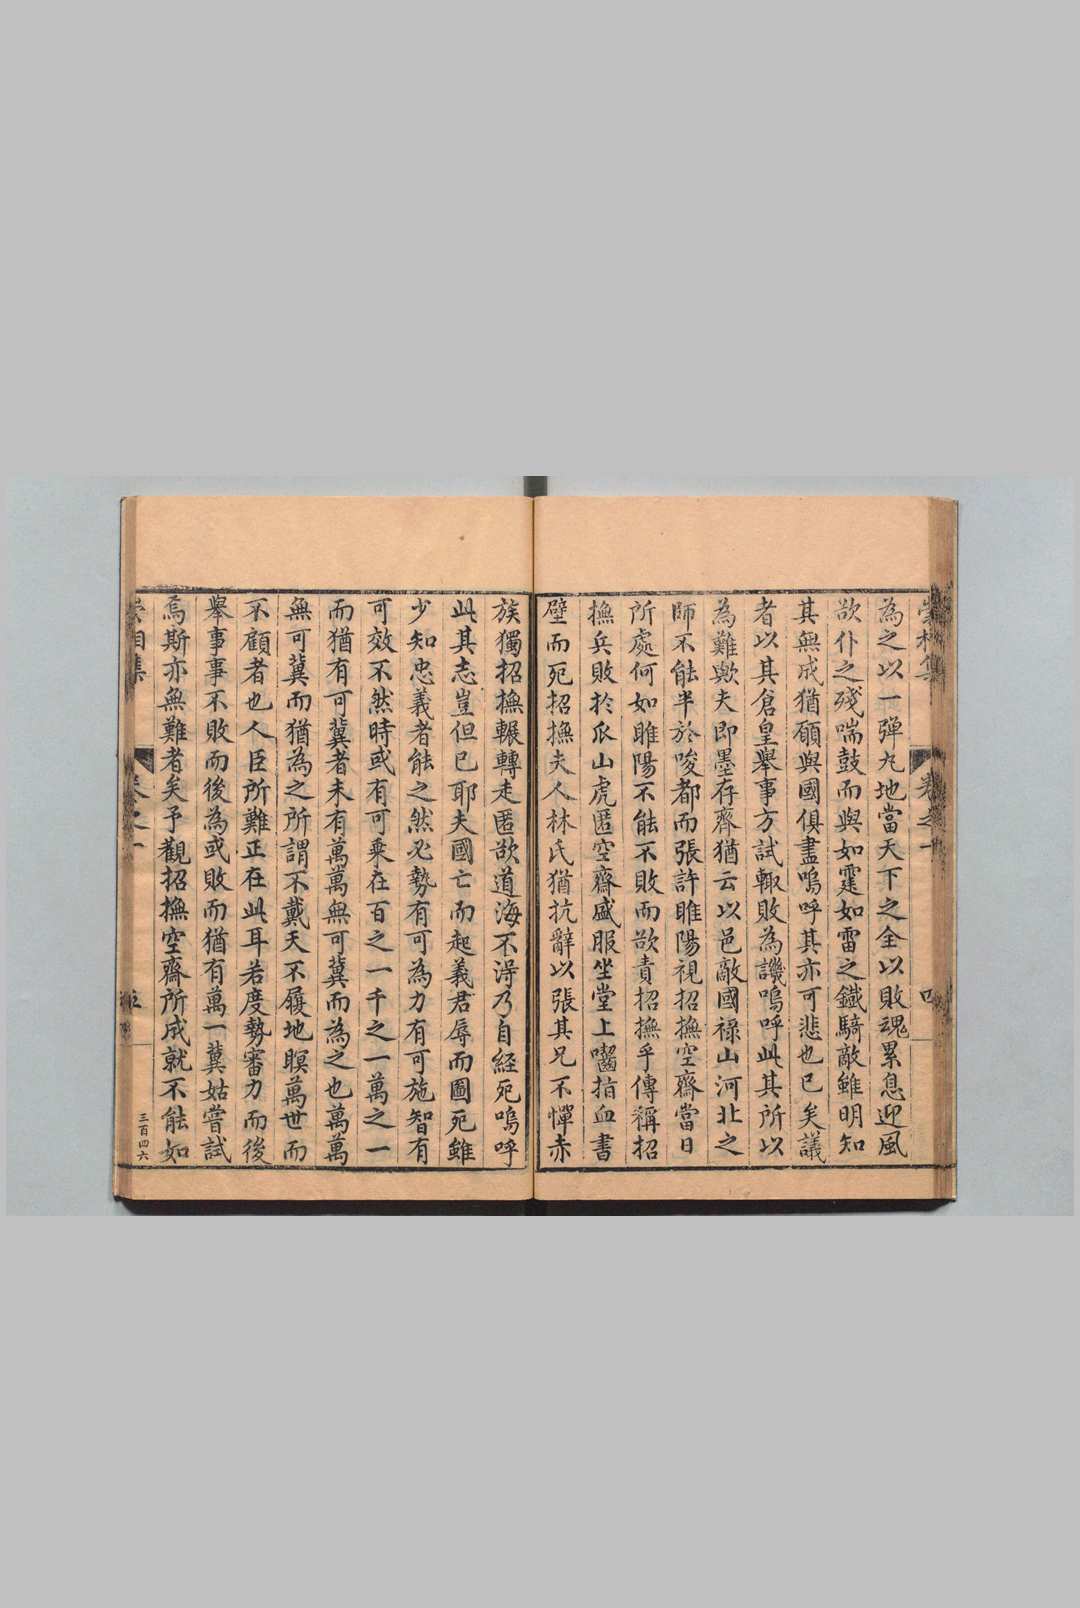 崇相集
卷之一
四
為之以一彈丸地當天下之全以敗魂累息迎風
欲仆之殘喘鼓而與如霆如雷之鐵騎敵雖明知
其無成猶願與國俱盡嗚呼其亦可悲也已矣議
者以其倉皇舉事方試輙敗為譏嗚呼此其所以
為難歟夫即墨存齊猶云以邑敵國祿山河北之
師不能半於唆都而張許睢陽視招撫空齋當日
所處何如睢陽不能不敗而欲責招撫乎傳稱招
撫兵敗於爪山虎匿空齋盛服坐堂上嚙指血書
壁而死招撫夫人林氏猶抗辭以張其兄不憚赤
族獨招撫輾轉走匿欲道海不淂乃自經死嗚呼
此其志豈但已耶夫國亡而起義君辱而圖死雖
少知忠義者能之然必勢有可為力有可施智有
可效不然時或有可乘在百之一千之一萬之一
而猶有可冀者未有萬萬無可冀而為之也萬萬
無可冀而猶為之所謂不戴天不履地瞑萬世而
不顧者也人臣所難正在此耳若度勢審力而後
舉事事不敗而後為或敗而猶有萬一冀姑嘗試
焉斯亦無難者矣予觀招撫空齋所成就不能如
崇相集
卷之一
五
三百四六